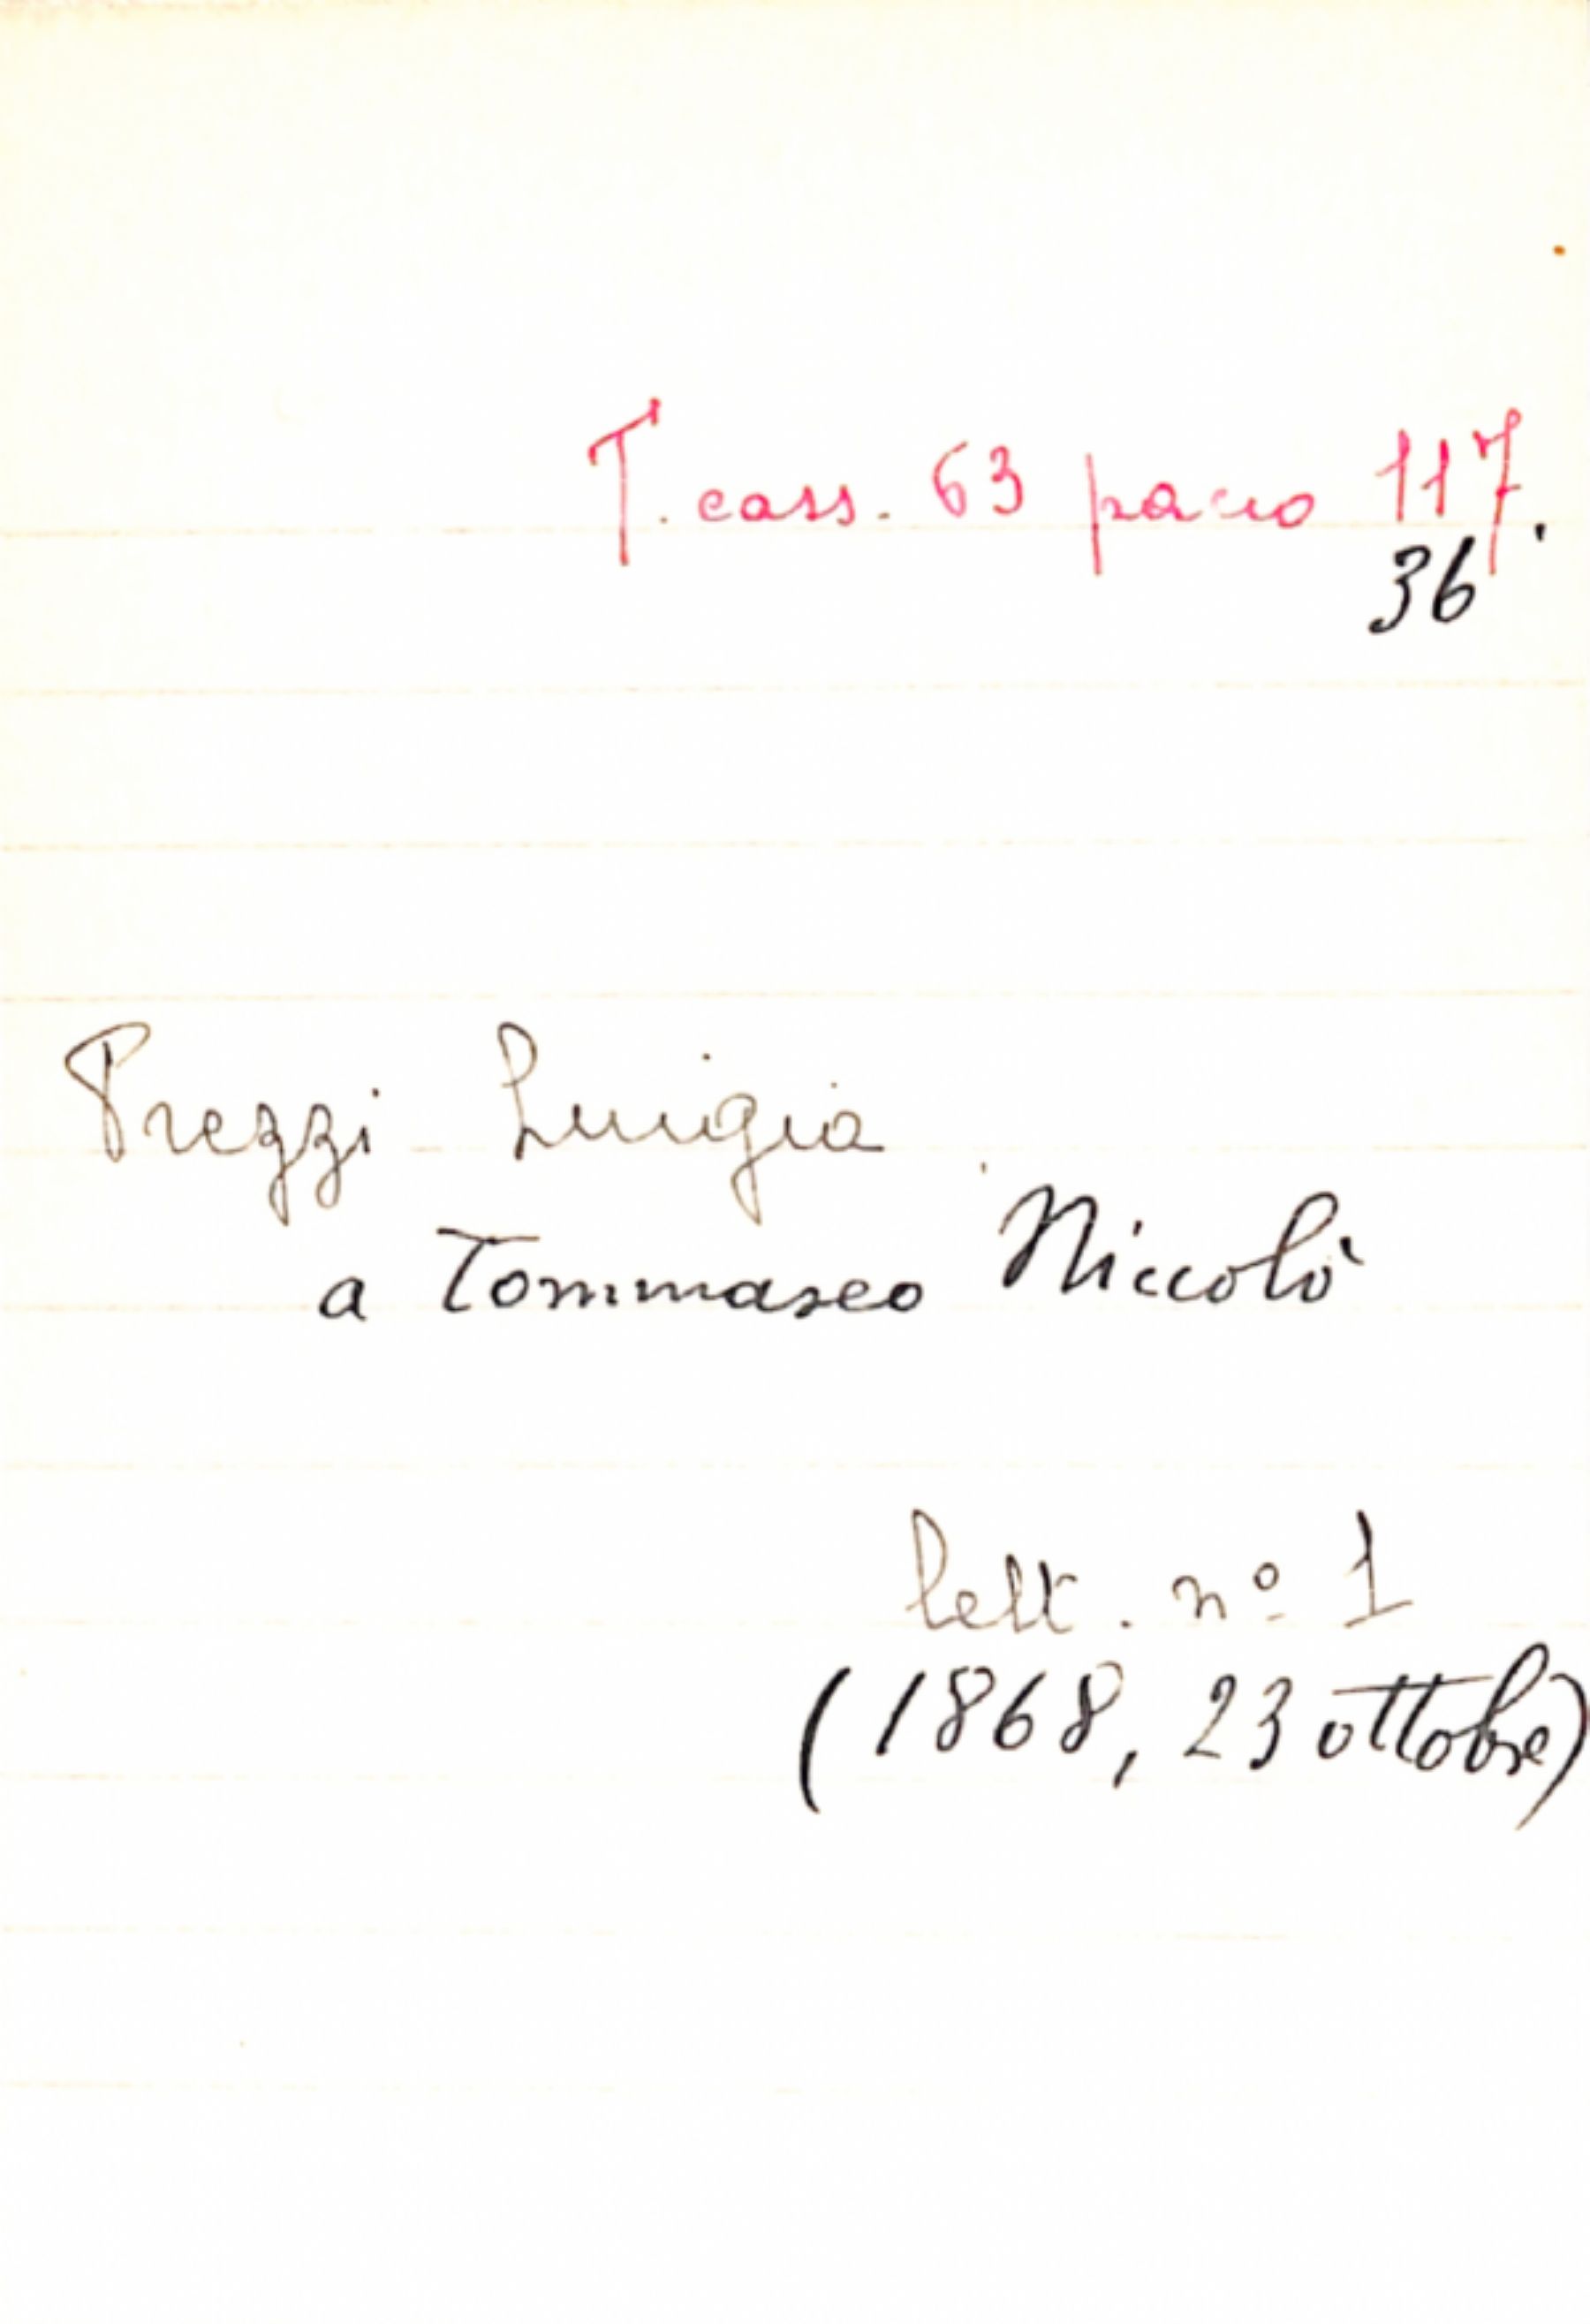 T. cass. 63 pacco 117.
36
Prezzi Luigia
a Tommaseo Niccolò
lett. nº 1
(1868, 23 ottobre)